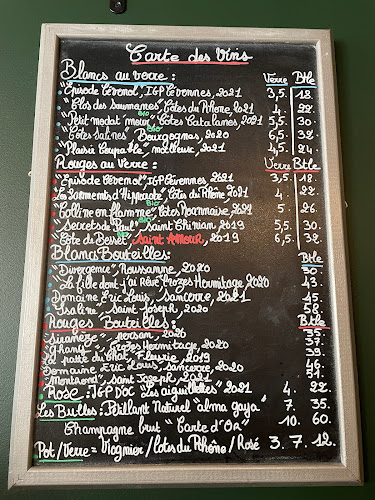 Carte des Vins
Blancs au verre : Verre Btle
"Episode Cévenol", IGP Cévennes, 2021 3,5. 18.
"Clos des Soumannes" Côtes du Rhône, 2021 4. 22.
"Petit modat 'mour" Côtes Catalanes, 2021 5,5. 30.
"Côtes Salines" Bourgogne, 2020 6,5. 32.
"Plaisir Coupable" moelleux, 2021 4,5. 24.
Rouges au Verre : Verre Btle
"Episode Cévenol" IGP Cévennes 2021 3,5. 18.
Côtes du Rhône 2021 4. 22.
"Colline en flamme" 2019 5. 26.
"Secrets de Paul" Saint Chinian, 2019 5,5. 30.
Saint Amour, 2019 6,5. 32.
Blancs Bouteilles : Btle
"Divergence" Roussanne, 2020 30.
"La fille dont j'ai rêvé" Crozes Hermitage, 2020 43.
Domaine Eric Louis, Sancerre, 2021 45.
Saint Joseph, 2020 58.
Rouges Bouteilles : Btle
2020
Crozes Hermitage, 2020 37.
"La patte du Chat", Fleurie, 2019 39.
Domaine Eric Louis, Sancerre, 2020 46.
Saint Joseph, 2021
Rosé : IGP D'OC "Les aiguillettes", 2021 4. 22.
Les Bulles : Pétillant Naturel "alma gaya" 7. 35.
Champagne brut "Carte d'Or" 10. 60.
Pot/Verre = Viognier / Côtes du Rhône / Rosé 3. 7. 12.
BIO
BIO
BIO